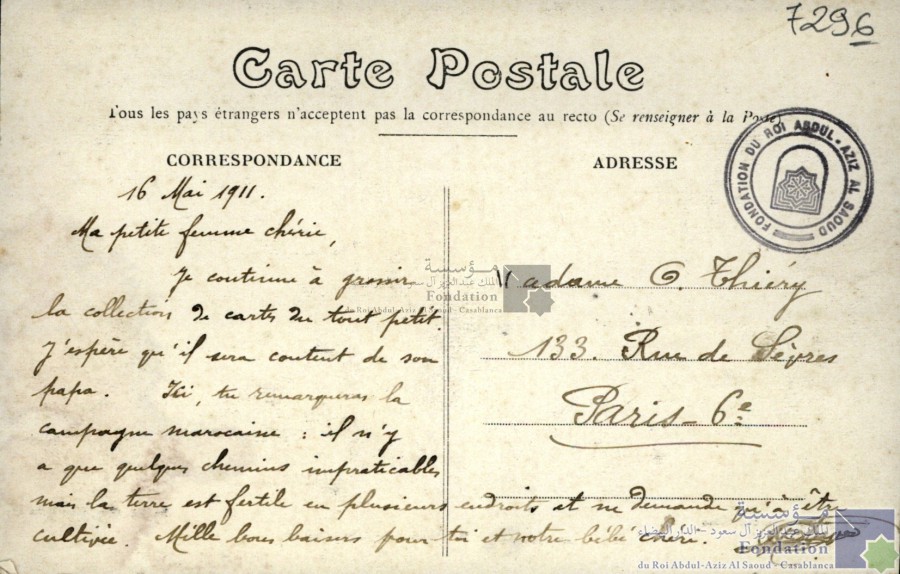 7296
Carte Postale
Tous les pays étrangers n'acceptent pas la correspondance au recto (Se renseigner à la Poste)
CORRESPONDANCE
16 Mai 1911.
Ma petite femme chérie,
Je continue à grossir
la collection de cartes du tout petit.
J'espère qu'il sera content de son
papa. Ici, tu remarqueras la
campagne marocaine : il n'y
a que quelques chemins impraticables
mais la terre est fertile en plusieurs endroits et ne demande qu'à être
cultivée. Mille bons baisers pour toi et notre bébé chéri.
ADRESSE
Madame G. Thiéry
133. Rue de Sèvres
Paris - 6e
FONDATION DU ROI ABDUL-AZIZ AL SAOUD
مؤسسة
الملك عبد العزيز آل سعود
Fondation
du Roi Abdul-Aziz Al Saoud - Casablanca
مؤسسة
الملك عبد العزيز آل سعود - الدار البيضاء
Fondation
du Roi Abdul-Aziz Al Saoud - Casablanca